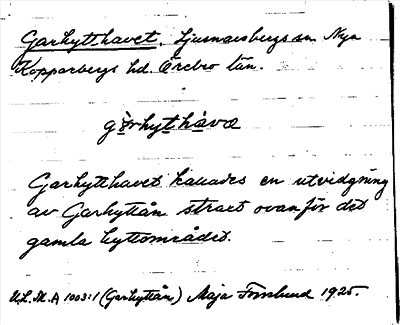 Garhytthavet. Ljusnarsbergs sn. Nya
Kopparbergs hd. Örebro län.
Garhytthavet kallades en utvidgning
av Garhyttån strax ovanför det
gamla hyttområdet.
U.L.M.A 1003:1 (Garhyttån) Maja Forslund 1925.